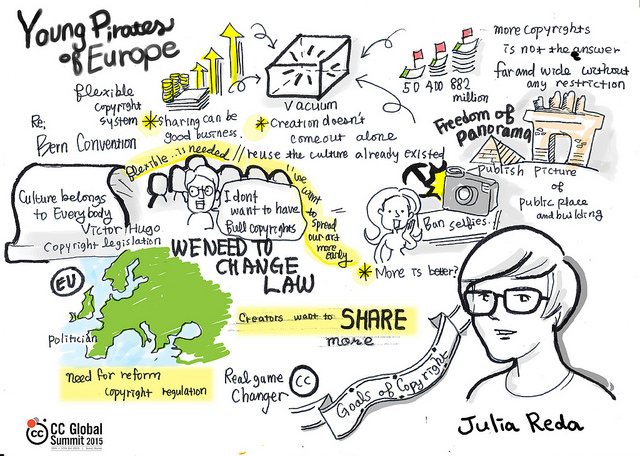 Young Pirates
of Europe
flexible
copyright
system
Re;
Bern Convention
*sharing can be
good business.
Vacuum
*Creation doesn't
come out alone
flexible.. is needed // reuse the culture already existed
50 400 882
million
more copyrights
is not the answer
far and wide without
any restriction
Freedom of
panorama
publish picture
of
public place
and building
Culture belongs
to Everybody
Victor Hugo
Copyright legislation
I dont
want to have
Full copyrights
we want
to
spread
our art
more
easily
Ban selfies.
*More is better?
WE NEED TO
CHANGE
LAW
EU
politician
need for reform
copyright regulation
Creators want to SHARE
more
Real game
Changer
CC
Goals of Copyright
Julia Reda
CC Global
Summit 2015